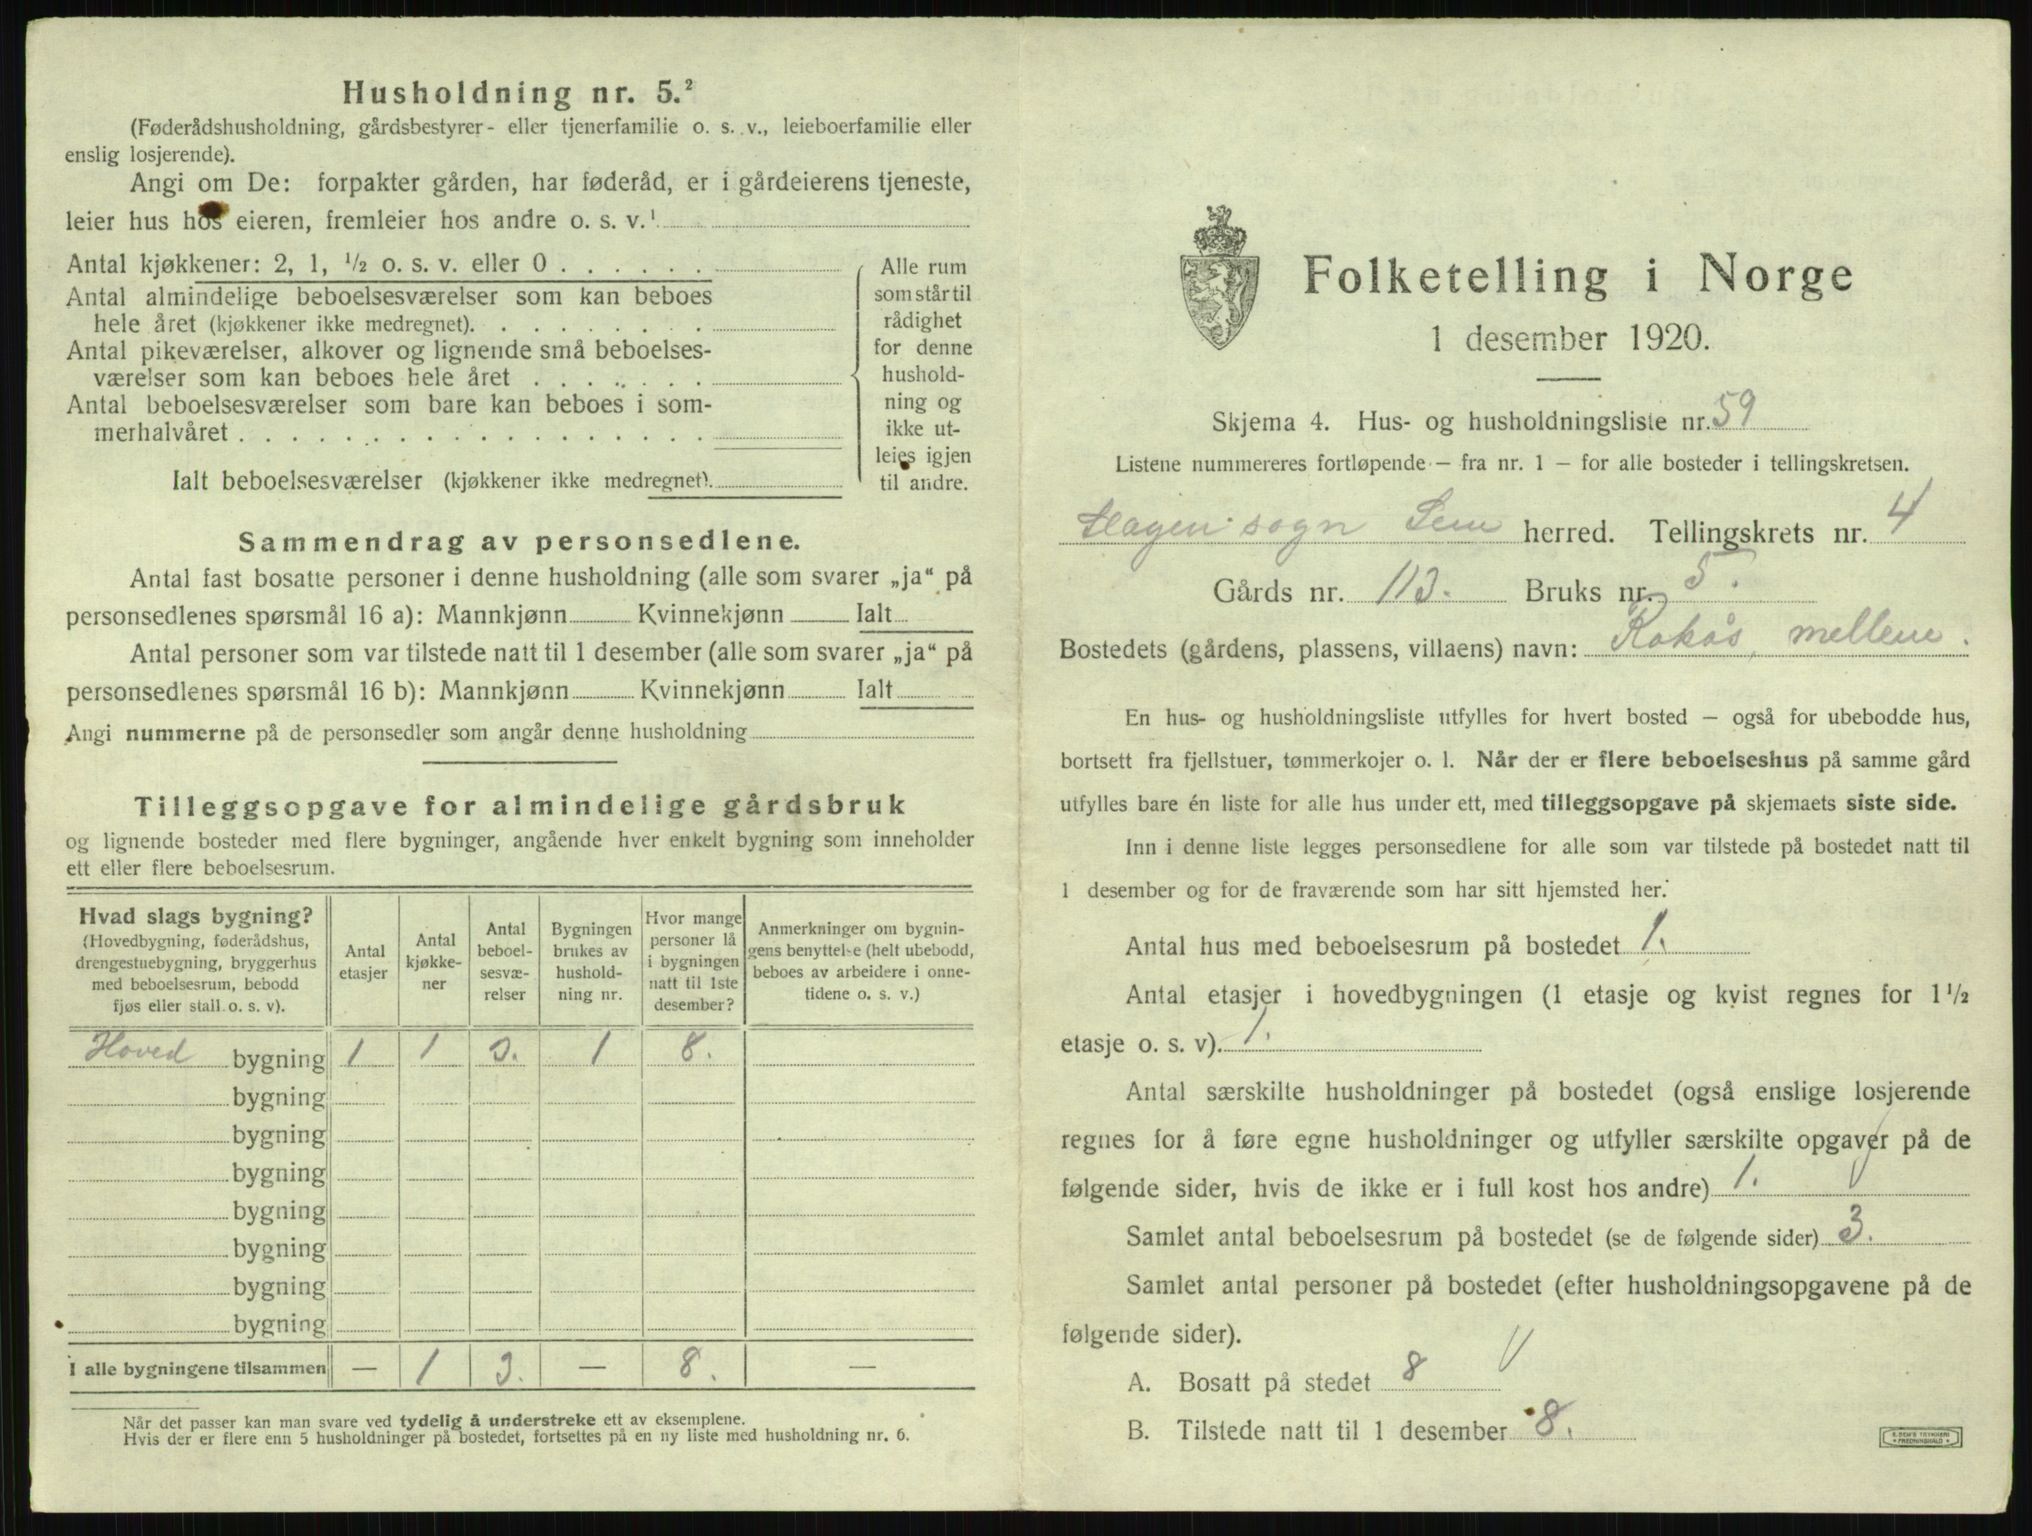 Husholdning nr. 5.²
(Føderådshusholdning, gårdsbestyrer- eller tjenerfamilie o. s. v., leieboerfamilie eller
enslig losjerende).
Angi om De: forpakter gården, har føderåd, er i gårdeierens tjeneste,
leier hus hos eieren, fremleier hos andre o. s. v.¹
Antal kjøkkener: 2, 1, ½ o. s. v. eller 0
Antal almindelige beboelsesværelser som kan beboes
hele året (kjøkkener ikke medregnet).
Antal pikeværelser, alkover og lignende små beboelses-
værelser som kan beboes hele året
Antal beboelsesværelser som bare kan beboes i som-
merhalvåret
Ialt beboelsesværelser (kjøkkener ikke medregnet).
Alle rum
som står til
rådighet
for denne
hushold-
ning og
ikke ut-
leies igjen
til andre.
Sammendrag av personsedlene.
Antal fast bosatte personer i denne husholdning (alle som svarer „ja“ på
personsedlenes spørsmål 16 a): Mannkjønn Kvinnekjønn Ialt
Antal personer som var tilstede natt til 1 desember (alle som svarer „ja“ på
personsedlenes spørsmål 16 b): Mannkjønn Kvinnekjønn Ialt
Angi nummerne på de personsedler som angår denne husholdning
Tilleggsopgave for almindelige gårdsbruk
og lignende bosteder med flere bygninger, angående hver enkelt bygning som inneholder
ett eller flere beboelsesrum.
Hvad slags bygning?
(Hovedbygning, føderådshus,
drengestuebygning, bryggerhus
med beboelsesrum, bebodd
fjøs eller stall o. s. v).
Antal
etasjer
Antal
kjøkke-
ner
Antal
beboel-
sesvæ-
relser
Bygningen
brukes av
hushold-
ning nr.
Hvor mange
personer lå
i bygningen
natt til 1ste
desember?
Anmerkninger om bygnin-
gens benyttelse (helt ubebodd,
beboes av arbeidere i onne-
tidene o. s. v.)
Hoved bygning 1 1 3. 1 8.
bygning
bygning
bygning
bygning
bygning
bygning
bygning
I alle bygningene tilsammen — 1 3. — 8. —
Når det passer kan man svare ved tydelig å understreke ett av eksemplene.
Hvis der er flere enn 5 husholdninger på bostedet, fortsettes på en ny liste med husholdning nr. 6.
Folketelling i Norge
1 desember 1920.
Skjema 4. Hus- og husholdningsliste nr. 59
Listene nummereres fortløpende — fra nr. 1 — for alle bosteder i tellingskretsen.
Slagen sogn Sem herred. Tellingskrets nr. 4
Gårds nr. 113. Bruks nr. 5.
Bostedets (gårdens, plassens, villaens) navn: Rakås, mellem.
En hus- og husholdningsliste utfylles for hvert bosted — også for ubebodde hus,
bortsett fra fjellstuer, tømmerkojer o. l. Når der er flere beboelseshus på samme gård
utfylles bare én liste for alle hus under ett, med tilleggsopgave på skjemaets siste side.
Inn i denne liste legges personsedlene for alle som var tilstede på bostedet natt til
1 desember og for de fraværende som har sitt hjemsted her.
Antal hus med beboelsesrum på bostedet 1.
Antal etasjer i hovedbygningen (1 etasje og kvist regnes for 1½
etasje o. s. v). 1.
Antal særskilte husholdninger på bostedet (også enslige losjerende
regnes for å føre egne husholdninger og utfyller særskilte opgaver på de
følgende sider, hvis de ikke er i full kost hos andre) 1.
Samlet antal beboelsesrum på bostedet (se de følgende sider) 3.
Samlet antal personer på bostedet (efter husholdningsopgavene på de
følgende sider).
A. Bosatt på stedet 8
B. Tilstede natt til 1 desember 8.